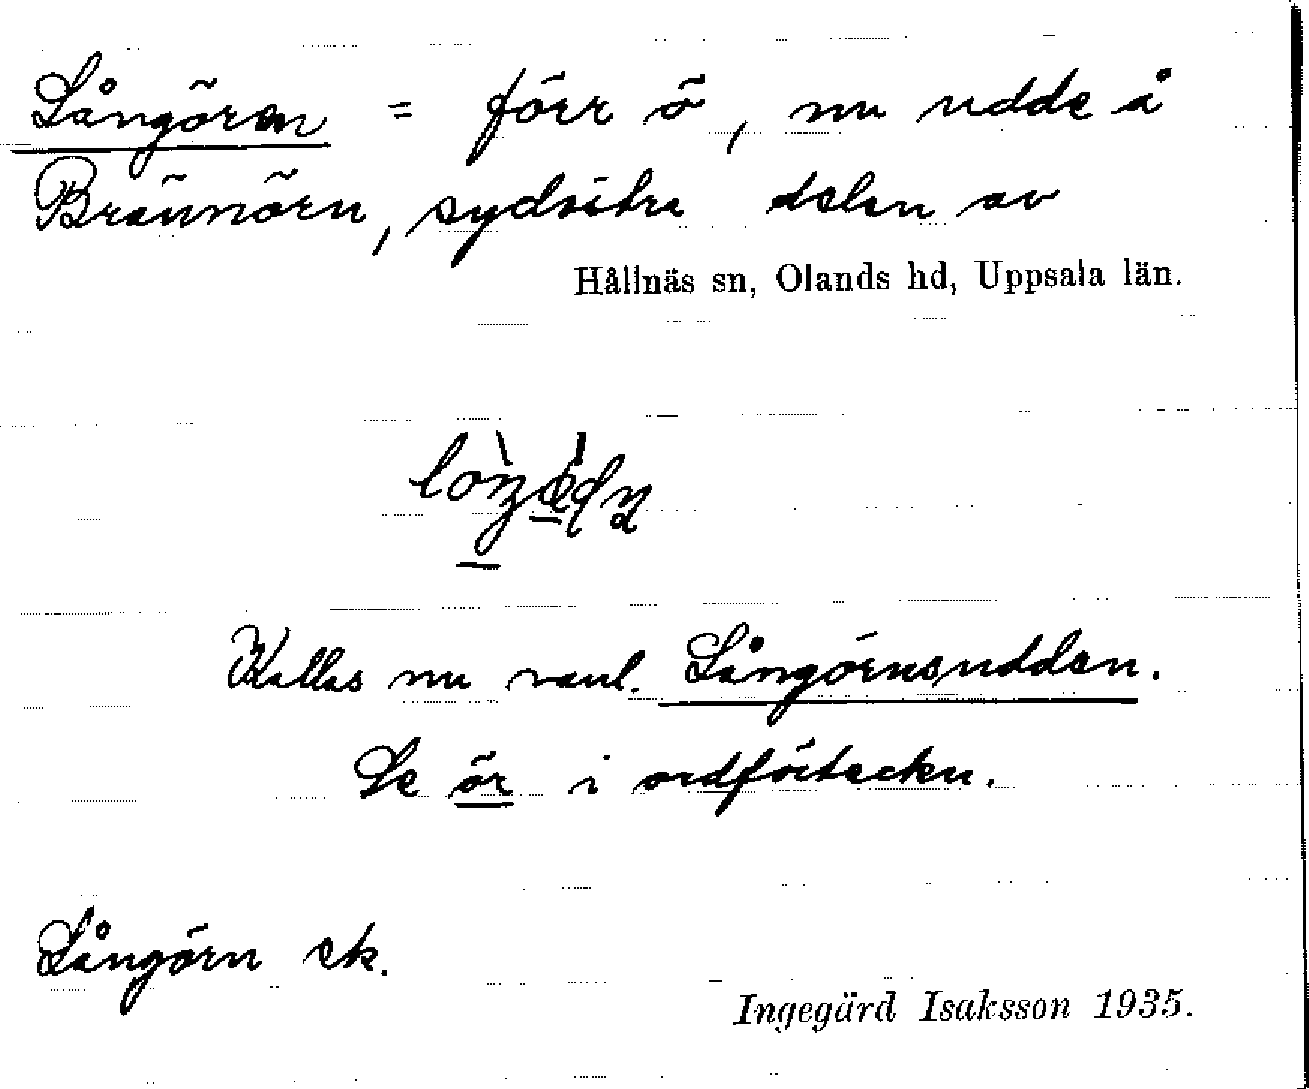 Långören = förr ö, nu udde å
Brännörn, sydvästra delen av
Hållnäs sn, Olands hd, Uppsala län.
Kallas nu vanl. Långörnsudden.
Se ör i ordförteckn.
Långörn ek.
Ingegärd Isaksson 1935.